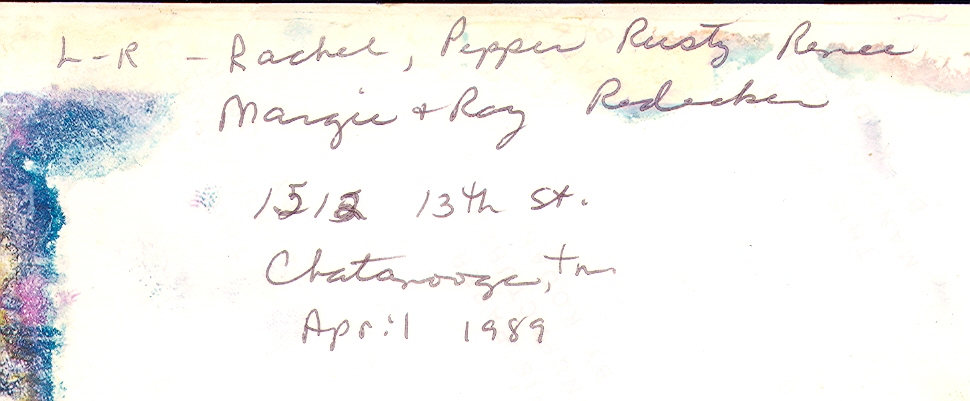 L-R - Rachel, Pepper Rusty Renee
Margie + Ray Redecker
13th St.
Chatanooga, tn
April 1989